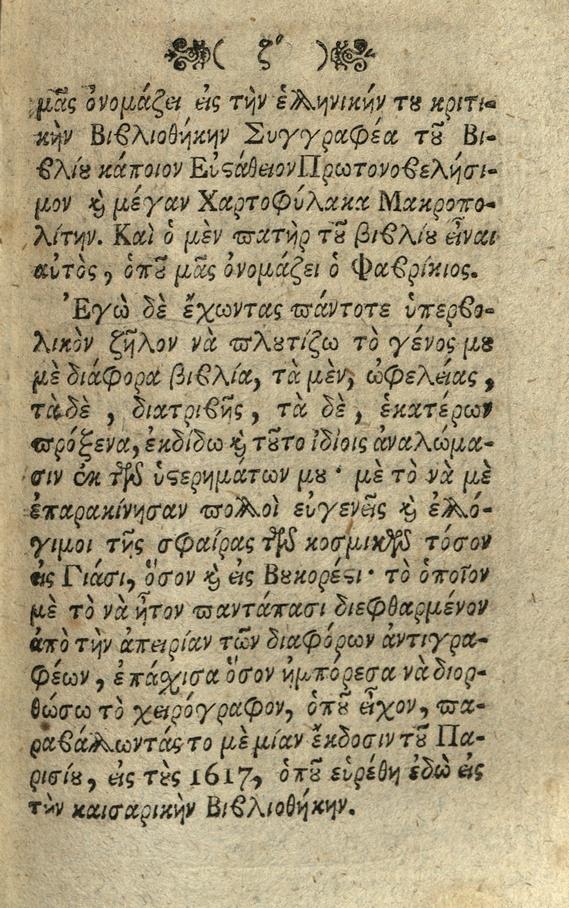 ( ζʹ )
μᾶς ὀνομάζει εἰς τὴν ἑλληνικήν τȣ κριτι-
κὴν Βιβλιοθήκην Συγγραφέα τȣ͂ Βι-
βλίȣ κάποιον Εὐϛάθειον Πρωτονοβελήσι-
μον ϗ̀ μέγαν Χαρτοφύλακα Μακροπο-
λίτην. Καὶ ὁ μὲν πατὴρ τȣ͂ βιβλίȣ εἶναι
αὐτὸς, ὁπȣ͂ μᾶς ὀνομάζει ὁ Φαβρίκιος.
Ἐγὼ δὲ ἔχωντας πάντοτε ὑπερβο-
λικὸν ζῆλον νὰ πλȣτίζω τὸ γένος μȣ
μὲ διάφορα βιβλία, τὰ μὲν, ὠφελείας,
τὰ δὲ, διατριβῆς, τὰ δὲ, ἑκατέρων
πρόξενα, ἐκδίδω ϗ̀ τȣ͂το ἰδίοις ἀναλώμα-
σιν ἐκ τῶν ὑϛερημάτων μȣ· μὲ τὸ νὰ μὲ
ἐπαρακίνησαν πολλοὶ εὐγενεῖς ϗ̀ ἐλλό-
γιμοι τῆς σφαίρας τῶν κοσμικῶν τόσον
εἰς Γιάσι, ὅσον ϗ̀ εἰς Βȣκορέϛι· τὸ ὁποῖον
μὲ τὸ νὰ ἦτον παντάπασι διεφθαρμένον
ἀπὸ τὴν ἀπειρίαν τῶν διαφόρων ἀντιγρα-
φέων, ἐπάχισα ὅσον ἠμπόρεσα νὰ διορ-
θώσω τὸ χειρόγραφον, ὁπȣ͂ εἶχον, πα-
ραβάλλωντάς το μὲ μίαν ἔκδοσιν τȣ͂ Πα-
ρισίȣ, εἰς τȣ̀ς 1617, ὁπȣ͂ εὑρέθη ἐδὼ εἰς
τὴν καισαρικὴν Βιβλιοθήκην.